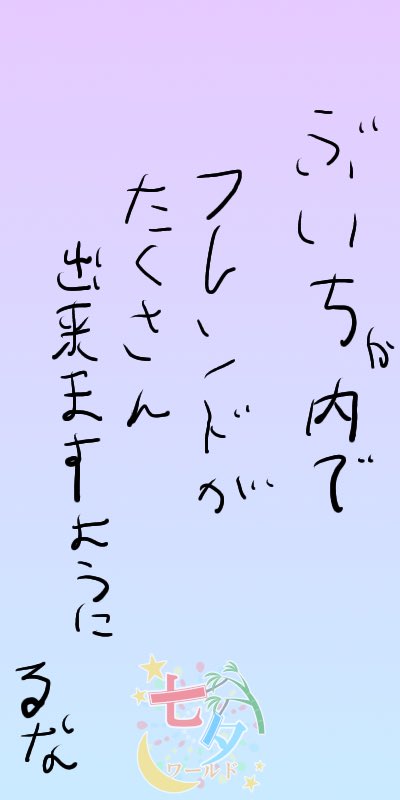 ぶいちが内で
フレンドが
たくさん
出来ますように
るな
七夕
ワールド